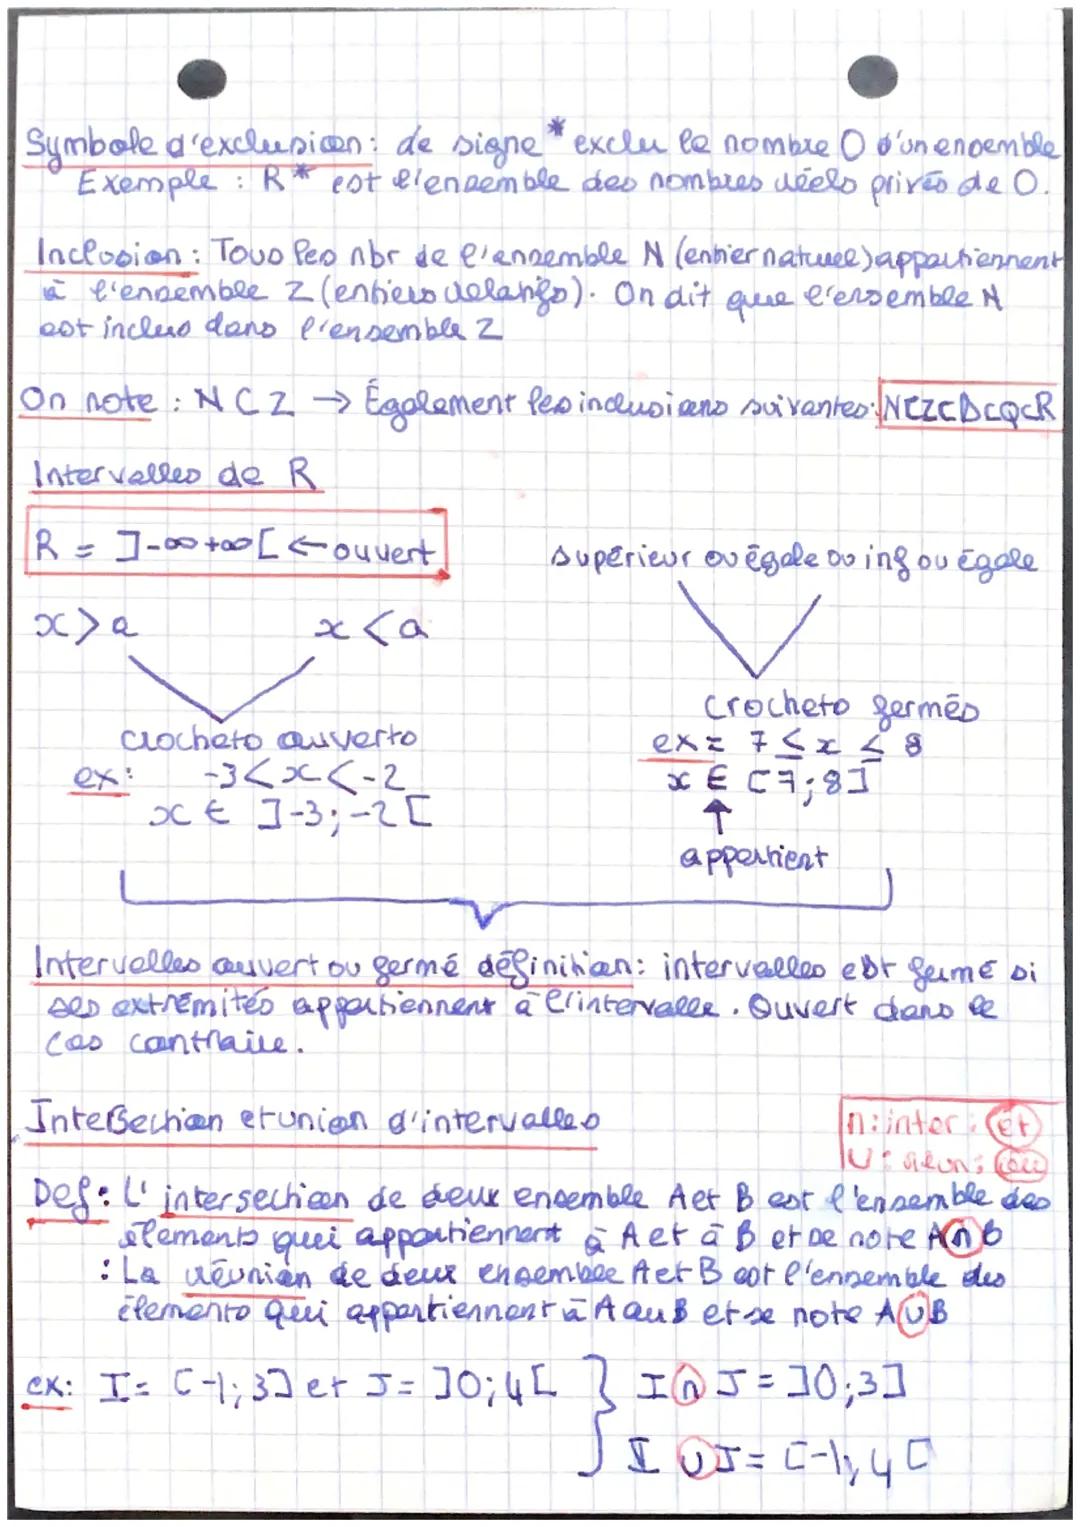 Symbole d'exclusion : de signe * exclu le nombre 0 d'un ensemble
Exemple : R* est l'ensemble des nombres réels privés de 0.
Inclusion : Tous les nbr de l'ensemble N (entier naturel) appartiennent
à l'ensemble Z (entiers relatifs). On dit que l'ensemble N
est inclus dans l'ensemble Z
On note : N ⊂ Z → Également les inclusions suivantes : N⊂Z⊂D⊂Q⊂R
Intervalles de R
R = ]-∞ +∞[ ← ouvert
supérieur ou égale ou inf ou égale
x > a x < a
crochets ouverts
ex: -3 < x < -2
x ∈ ]-3; -2[
crochets fermés
ex = 7 ≤ x ≤ 8
x ∈ [7; 8]
↑
appartient
Intervalles ouvert ou fermé définition : intervalles est fermé si
ses extrémités appartiennent à l'intervalle. Ouvert dans le
cas contraire.
Intersection et union d'intervalles
∩ : inter : et
U : réun : ou
Def : L'intersection de deux ensemble A et B est l'ensemble des
élements qui appartiennent à A et à B et se note A∩B
: La réunion de deux ensemble A et B est l'ensemble des
élements qui appartiennent à A ou B et se note AUB
ex: I = [-1; 3] et J = ]0; 4[ } I ∩ J = ]0; 3]
I U J = [-1; 4[